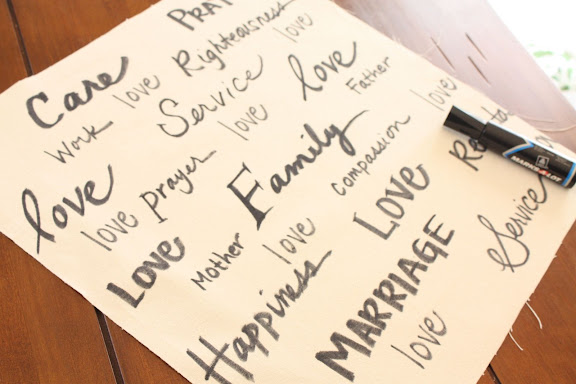 PRAY
Care love Righteousness love
Work Service love Father
love love prayer love Family Compassion love
LOVE Mother love LOVE Service
Happiness MARRIAGE love
MARKS-A-LOT